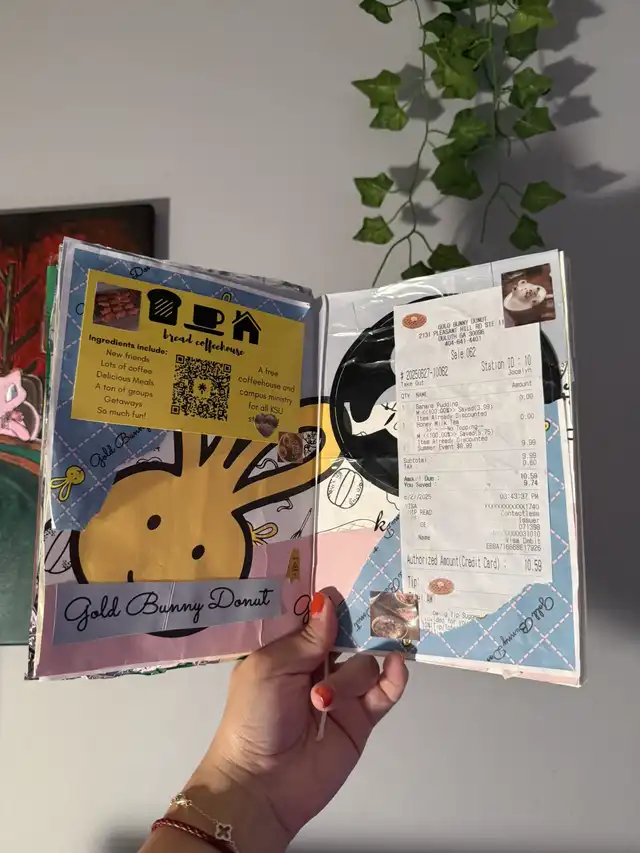 bread coffeehouse
Ingredients include:
New friends
Lots of coffee
Delicious Meals
A ton of groups
Getaways
So much fun!
A free
coffeehouse and
campus ministry
for all KSU
Gold Bunny
Gold Bunny Donut
GOLD BUNNY DONUT
2131 PLEASANT HILL RD STE 11
DULUTH GA 30096
404-641-4401
Sale 062
Station ID : 10
# 20250627-10062
Jocelyn
Take Out
QTY NAME Amount
1 Banana Pudding 0.00
Saved(3.99)
Item Already Discounted
1 Honey Milk Tea 0.00
No Topping
Saved(5.75)
Item Already Discounted
Summer Event $9.99 9.99
Subtotal 9.99
TAX 0.60
Amount Due : 10.59
You Saved 9.74
/27/2025 03:43:37 PM
ISA XXXXXXXXXXXX1740
IP READ Contactless
DE Issuer
071398
Name Visa Debit
Authorized Amount(Credit Card) : 10.59
Tip
Gold Bunny Do